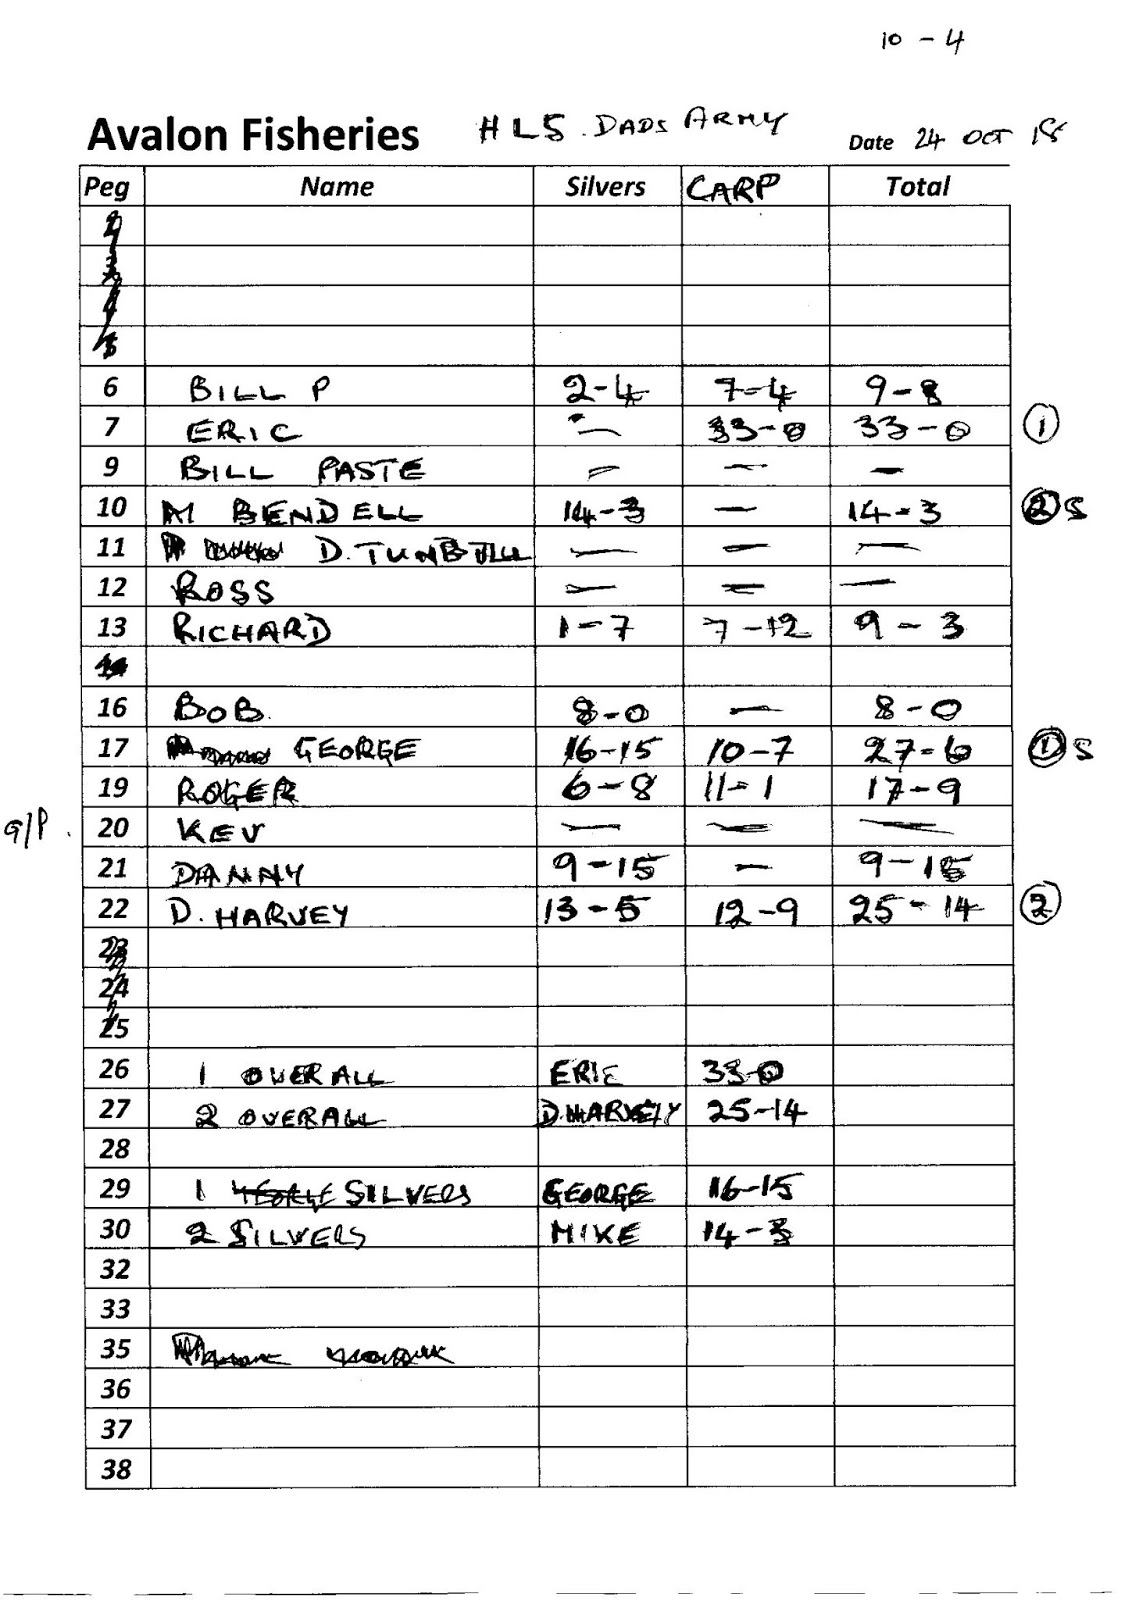 10 - 4
Avalon Fisheries HLS. DADS ARMY Date 24 OCT 18
Peg Name Silvers CARP Total
6 BILL P 2-4 7-4 9-8
7 ERIC - 33-0 33-0 1
9 BILL PASTE - - -
10 M BENDELL 14-3 - 14-3 2 S
11 D. TUNBULL - - -
12 ROSS - - -
13 RICHARD 1-7 7-12 9-3
16 BOB. 8-0 - 8-0
17 GEORGE 16-15 10-7 27-6 1 S
19 ROGER 6-8 11-1 17-9
G/P. 20 KEV - - -
21 DANNY 9-15 - 9-15
22 D. HARVEY 13-5 12-9 25-14 2
23
24
25
26 1 OVERALL ERIC 33-0
27 2 OVERALL D. HARVEY 25-14
28
29 1 SILVERS GEORGE 16-15
30 2 SILVERS MIKE 14-3
32
33
35
36
37
38